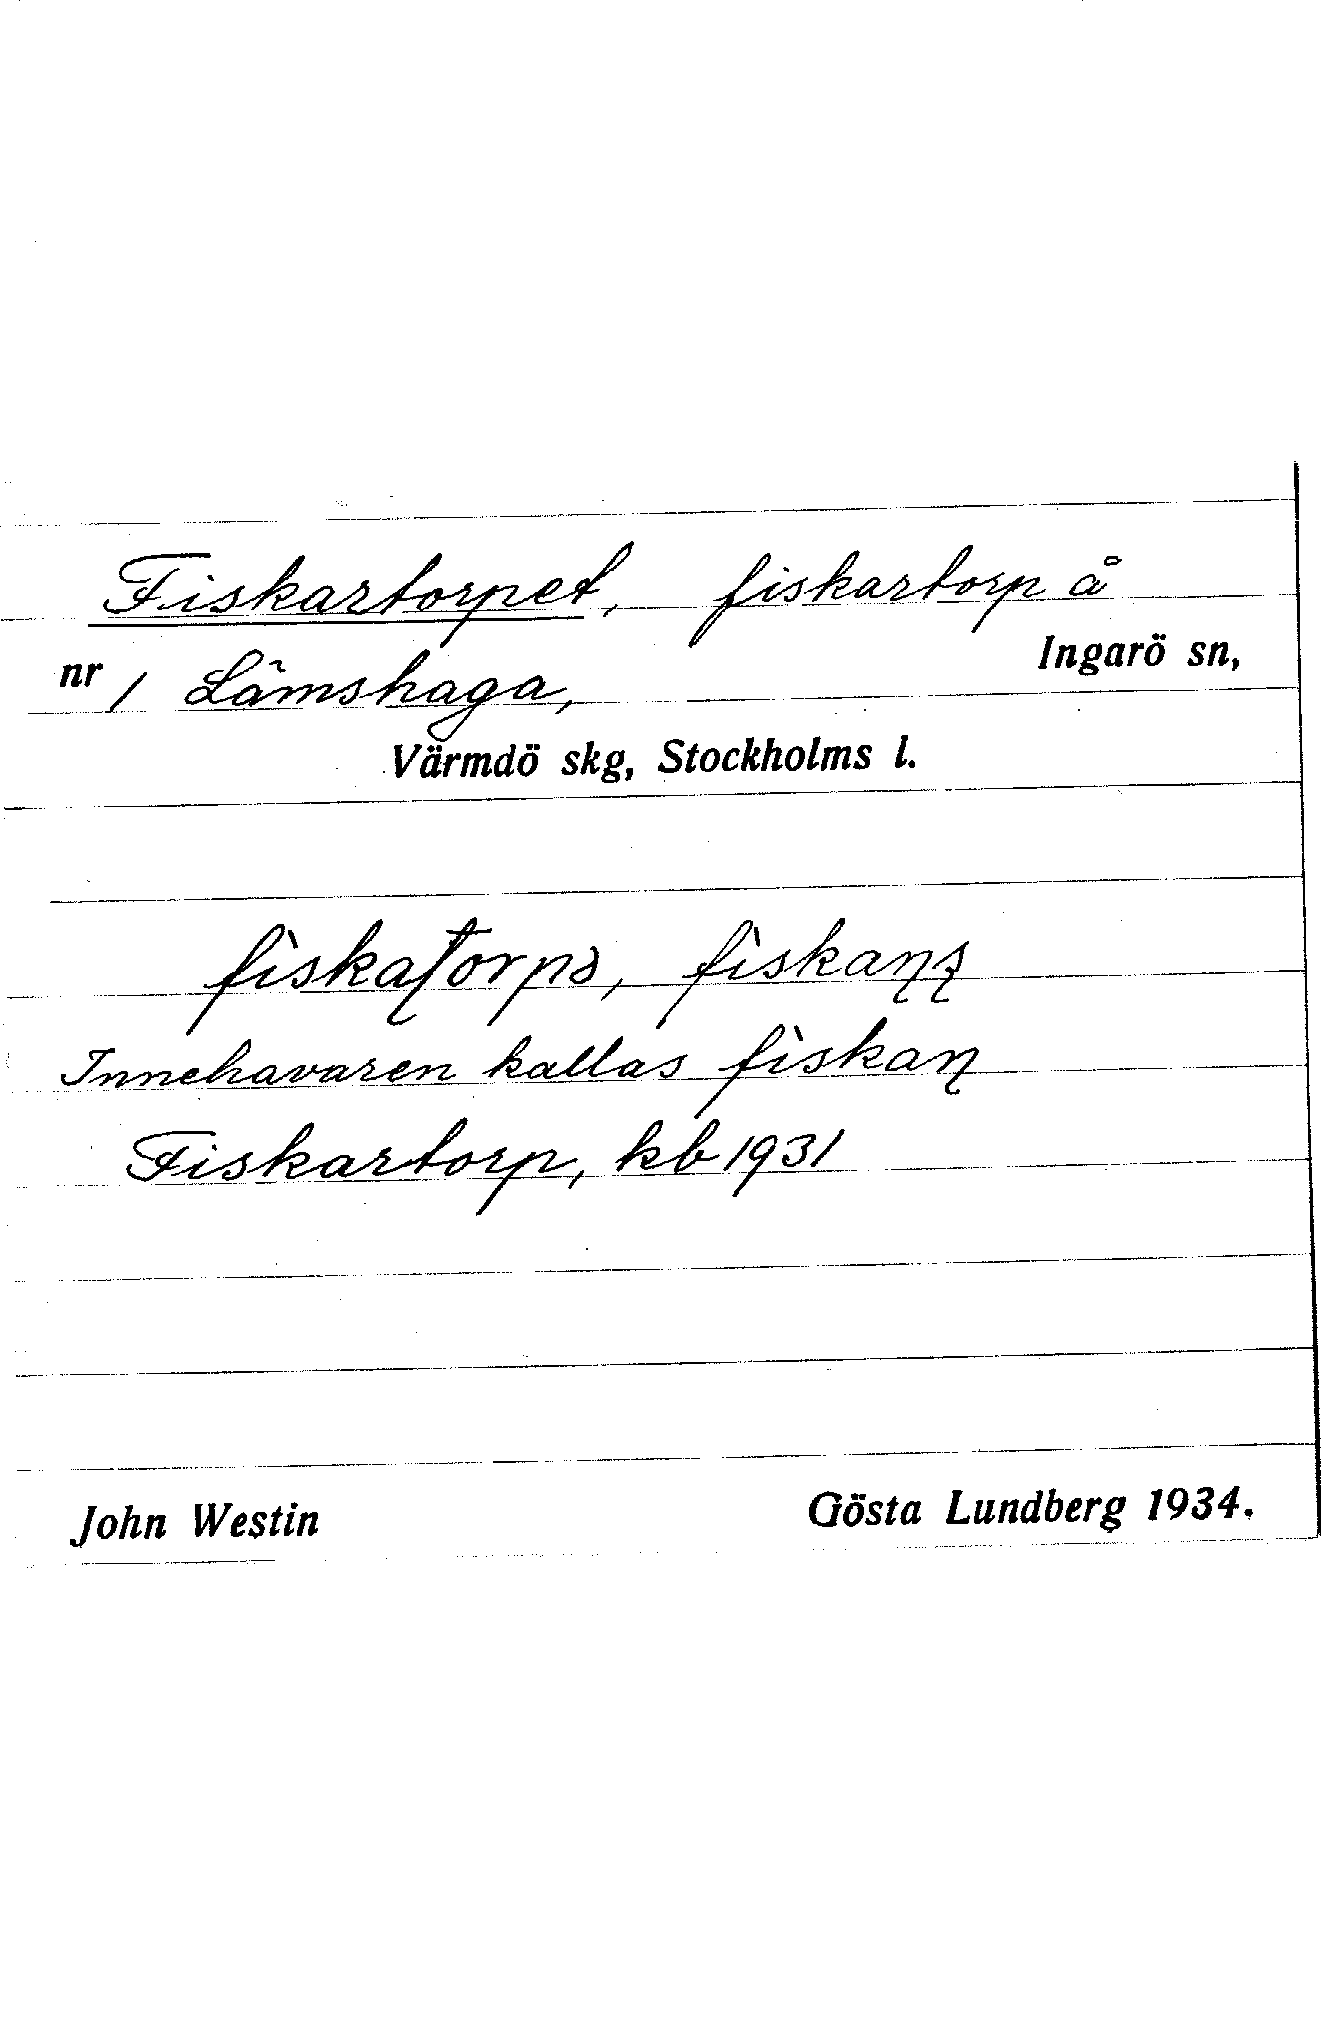 Fiskartorpet, fiskartorp å
nr 1 Lämshaga, Ingarö sn,
Värmdö skg, Stockholms l.
Innehavaren kallas
Fiskartorp, kb 1931
John Westin Gösta Lundberg 1934.